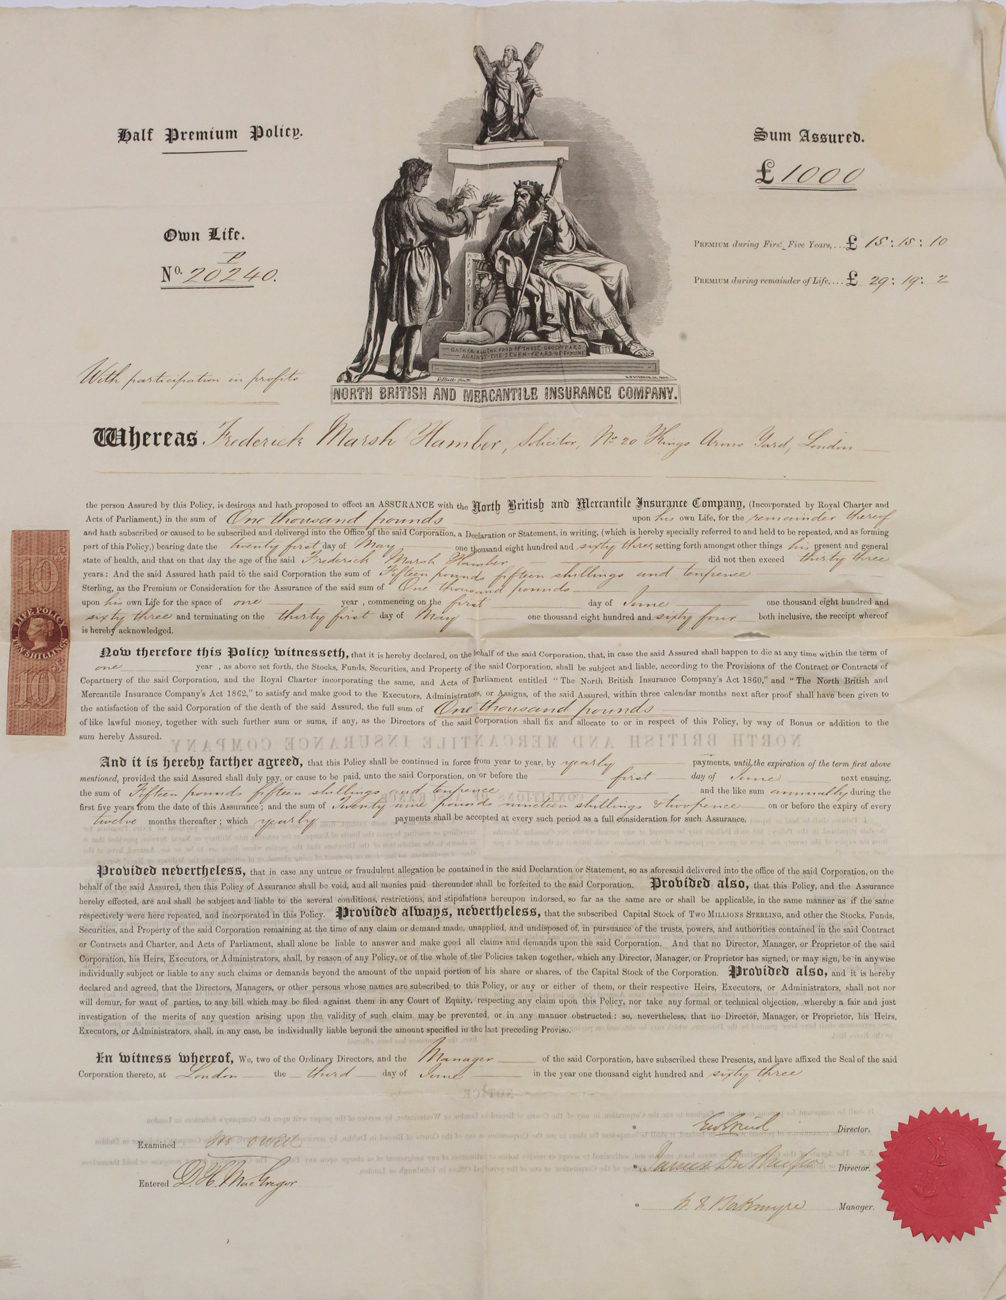 Half Premium Policy.
Sum Assured.
£1000
Own Life.
P
No. 20240.
Premium during First Five Years,... £ 15 : 15 : 10
Premium during remainder of Life,... £ 29 : 19 : 2
With participation in profits
GATHER ALL THE FOOD OF THOSE GOOD YEARS
AGAINST THE SEVEN YEARS OF FAMINE
NORTH BRITISH AND MERCANTILE INSURANCE COMPANY.
Whereas Frederick Marsh Hamber, Solicitor, No 20 Kings Arms Yard, London
the person Assured by this Policy, is desirous and hath proposed to effect an ASSURANCE with the North British and Mercantile Insurance Company, (Incorporated by Royal Charter and
Acts of Parliament,) in the sum of One thousand pounds upon his own Life, for the remainder thereof
and hath subscribed or caused to be subscribed and delivered into the Office of the said Corporation, a Declaration or Statement, in writing, (which is hereby specially referred to and held to be repeated, and as forming
part of this Policy,) bearing date the twenty first day of May one thousand eight hundred and sixty three, setting forth amongst other things his present and general
state of health, and that on that day the age of the said Frederick Marsh Hamber did not then exceed thirty three
years: And the said Assured hath paid to the said Corporation the sum of Fifteen pounds fifteen shillings and tenpence
Sterling, as the Premium or Consideration for the Assurance of the said sum of One thousand pounds
upon his own Life for the space of one year, commencing on the first day of June one thousand eight hundred and
sixty three and terminating on the thirty first day of May one thousand eight hundred and sixty four both inclusive, the receipt whereof
is hereby acknowledged.
LIFE POLICY
TEN SHILLINGS
10
Now therefore this Policy witnesseth, that it is hereby declared, on the behalf of the said Corporation, that, in case the said Assured shall happen to die at any time within the term of
one year, as above set forth, the Stocks, Funds, Securities, and Property of the said Corporation, shall be subject and liable, according to the Provisions of the Contract or Contracts of
Copartnery of the said Corporation, and the Royal Charter incorporating the same, and Acts of Parliament entitled "The North British Insurance Company's Act 1860," and "The North British and
Mercantile Insurance Company's Act 1862," to satisfy and make good to the Executors, Administrators, or Assigns, of the said Assured, within three calendar months next after proof shall have been given to
the satisfaction of the said Corporation of the death of the said Assured, the full sum of One thousand pounds
of like lawful money, together with such further sum or sums, if any, as the Directors of the said Corporation shall fix and allocate to or in respect of this Policy, by way of Bonus or addition to the
sum hereby Assured.
And it is hereby farther agreed, that this Policy shall be continued in force from year to year, by yearly payments, until the expiration of the term first above
mentioned, provided the said Assured shall duly pay, or cause to be paid, unto the said Corporation, on or before the first day of June next ensuing,
the sum of Fifteen pounds fifteen shillings and tenpence and the like sum annually during the
first five years from the date of this Assurance; and the sum of Twenty nine pounds nineteen shillings & twopence on or before the expiry of every
twelve months thereafter; which yearly payments shall be accepted at every such period as a full consideration for such Assurance.
Provided nevertheless, that in case any untrue or fraudulent allegation be contained in the said Declaration or Statement, so as aforesaid delivered into the office of the said Corporation, on the
behalf of the said Assured, then this Policy of Assurance shall be void, and all monies paid thereunder shall be forfeited to the said Corporation. Provided also, that this Policy, and the Assurance
hereby effected, are and shall be subject and liable to the several conditions, restrictions, and stipulations hereupon indorsed, so far as the same are or shall be applicable, in the same manner as if the same
respectively were here repeated, and incorporated in this Policy. Provided always, nevertheless, that the subscribed Capital Stock of Two Millions Sterling, and other the Stocks, Funds,
Securities, and Property of the said Corporation remaining at the time of any claim or demand made, unapplied, and undisposed of, in pursuance of the trusts, powers, and authorities contained in the said Contract
or Contracts and Charter, and Acts of Parliament, shall alone be liable to answer and make good all claims and demands upon the said Corporation. And that no Director, Manager, or Proprietor of the said
Corporation, his Heirs, Executors, or Administrators, shall, by reason of any Policy, or of the whole of the Policies taken together, which any Director, Manager, or Proprietor has signed, or may sign, be in anywise
individually subject or liable to any such claims or demands beyond the amount of the unpaid portion of his share or shares, of the Capital Stock of the Corporation. Provided also, and it is hereby
declared and agreed, that the Directors, Managers, or other persons whose names are subscribed to this Policy, or any or either of them, or their respective Heirs, Executors, or Administrators, shall not nor
will demur, for want of parties, to any bill which may be filed against them in any Court of Equity, respecting any claim upon this Policy, nor take any formal or technical objection, whereby a fair and just
investigation of the merits of any question arising upon the validity of such claim may be prevented, or in any manner obstructed: so, nevertheless, that no Director, Manager, or Proprietor, his Heirs,
Executors, or Administrators, shall, in any case, be individually liable beyond the amount specified in the last preceding Proviso.
In witness whereof, We, two of the Ordinary Directors, and the Manager of the said Corporation, have subscribed these Presents, and have affixed the Seal of the said
Corporation thereto, at London the third day of June in the year one thousand eight hundred and sixty three
Director.
Examined
James Director.
Entered D. H. MacGregor
Manager.